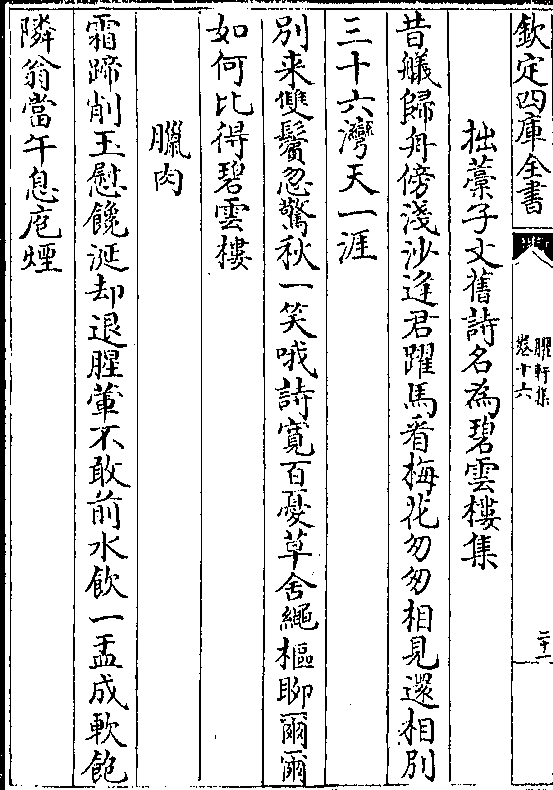 欽定四庫全書
臞軒集
卷十六
二十一
拙藁子文舊詩名為碧雲樓集
昔艤歸舟傍淺沙逢君躍馬看梅花匆匆相見還相別
三十六灣天一涯
別来雙鬢忽驚秋一笑哦詩寛百憂草舍繩樞聊爾爾
如何比得碧雲樓
臘肉
霜蹄削玉慰饞涎却退腥葷不敢前水飲一盂成軟飽
隣翁當午息庖煙